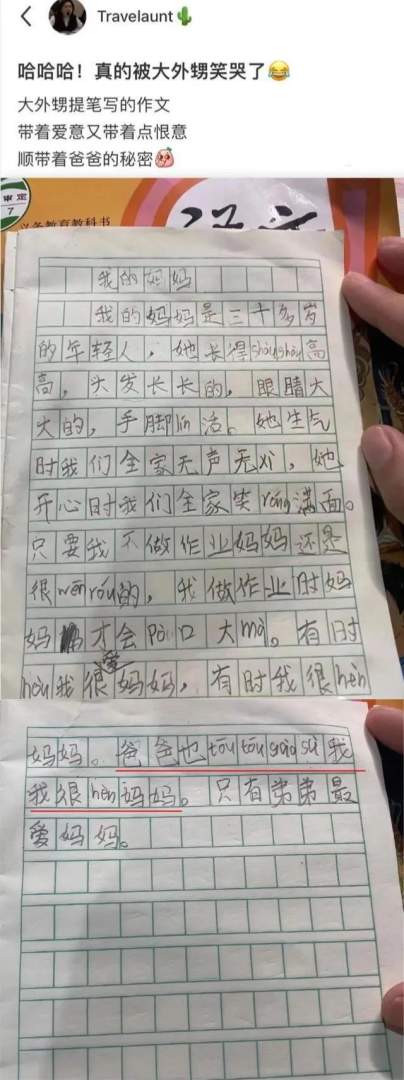 Travelaunt🌵
哈哈哈！真的被大外甥笑哭了😂
大外甥提笔写的作文
带着爱意又带着点恨意
顺带着爸爸的秘密
审定
7
义务教育教科书
语文
我的妈妈
我的妈妈是三十多岁
的年轻人，她长得shòushòu高
高，头发长长的，眼睛大
大的，手脚lín活。她生气
时我们全家无声无xī，她
开心时我们全家笑róng满面。
只要我不做作业妈妈还是
很wēnróu的，我做作业时妈
妈才会pò口大mà。有时
hòu我很爱妈妈，有时我很hèn
妈妈。爸爸也tōutōugàosù我
我很hèn妈妈。只有弟弟最
爱妈妈。